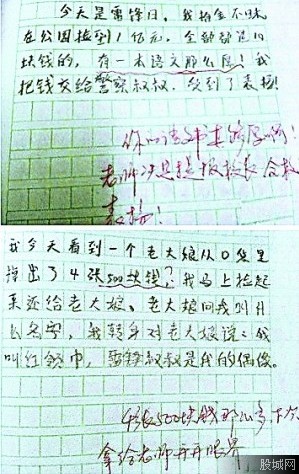 今天是雷锋日，我拾金不昧
在公园捡到1亿元，全部都是10
块钱的，有一本语文那么厚！我
把钱交给警察叔叔，受到了表扬！
你的语文书真够厚啊！
老师决定提报校长 合校
表扬！
我今天看到一个老大娘从口袋里
掉出了4张500块钱？我马上捡起
来还给老大娘、老大娘问我叫什
么名字，我转身对老大娘说：我
叫红领巾，雷锋叔叔是我的偶像。
4张500块钱那么多，下次
拿给老师开开眼界
股城网